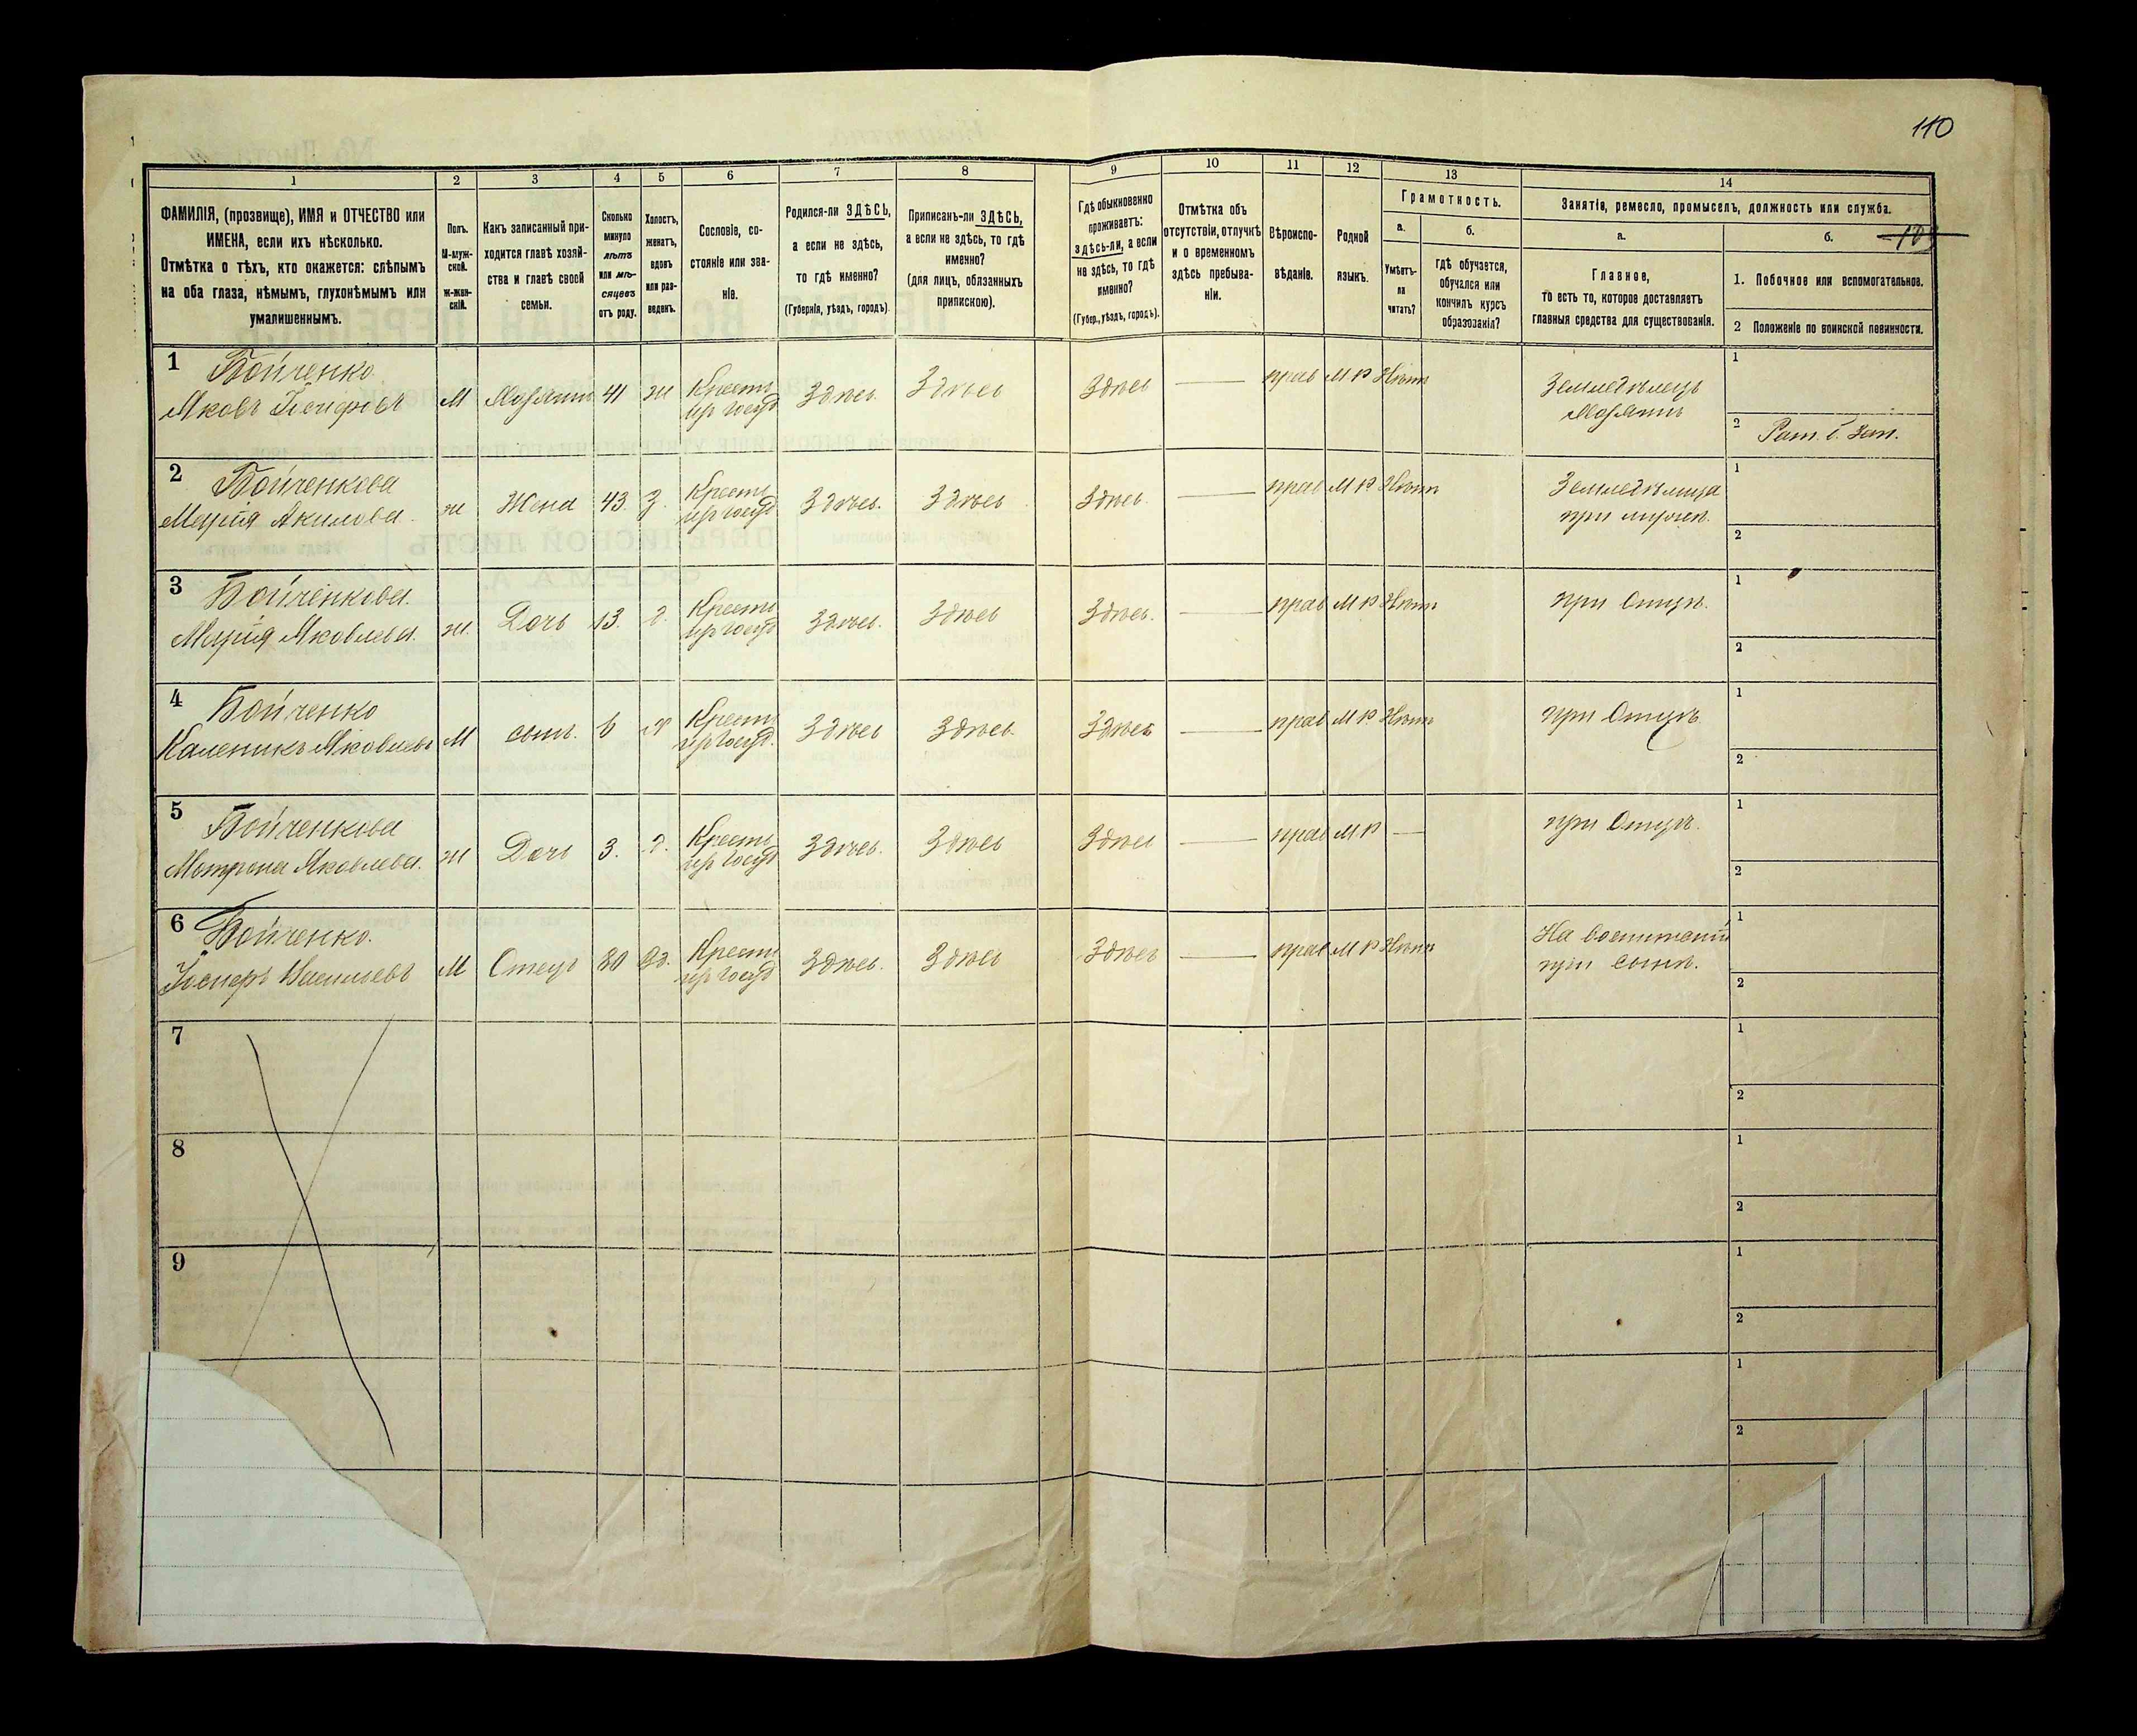 110
1 2 3 4 5 6 7 8 9 10 11 12 13 14
ФАМИЛІЯ, (прозвище), ИМЯ и ОТЧЕСТВО или
ИМЕНА, если ихъ нѣсколько.
Отмѣтка о тѣхъ, кто окажется: слѣпымъ
на оба глаза, нѣмымъ, глухонѣмымъ или
умалишеннымъ.
Полъ.
М-муж-
ской.
ж-жен-
скій.
Какъ записанный при-
ходится главѣ хозяй-
ства и главѣ своей
семьи.
Сколько
минуло
лѣтъ
или мѣ-
сяцевъ
отъ роду.
Холостъ,
женатъ,
вдовъ
или раз-
веденъ.
Сословіе, со-
стояніе или зва-
ніе.
Родился-ли ЗДѢСЬ,
а если не здѣсь,
то гдѣ именно?
(Губернія, уѣздъ, городъ).
Приписанъ-ли ЗДѢСЬ,
а если не здѣсь, то гдѣ
именно?
(для лицъ, обязанныхъ
припискою).
Гдѣ обыкновенно
проживаетъ:
здѣсь-ли, а если
не здѣсь, то гдѣ
именно?
(Губер., уѣздъ, городъ).
Отмѣтка объ
отсутствіи, отлучкѣ
и о временномъ
здѣсь пребыва-
ніи.
Вѣроиспо-
вѣданіе.
Родной
языкъ.
Грамотность.
а.
Умѣетъ-
ли
читать?
б.
гдѣ обучается,
обучался или
кончилъ курсъ
образованія?
Занятіе, ремесло, промыселъ, должность или служба.
а.
Главное,
то есть то, которое доставляетъ
главныя средства для существованія.
б.
1. Побочное или вспомогательное.
2 Положеніе по воинской повинности.
1 Бойченко
Яковъ Іосифовъ М Хозяинъ 41 ж Крестъ
изъ госуд Здѣсь Здѣсь Здѣсь — прав М Р Нѣтъ Земледѣлецъ
Хозяинъ
1
2 Рат. Зап.
2 Бойченкова
Марія Акимова ж Жена 43. З. Крестъ
изъ госуд Здѣсь. Здѣсь Здѣсь — прав М Р Нѣтъ Земледѣлица
при мужѣ.
1
2
3 Бойченкова
Марія Яковлева ж. Дочь 13. Крестъ
изъ госуд Здѣсь. Здѣсь Здѣсь. — прав М Р Нѣтъ при Отцѣ.
1
2
4 Бойченко
Каленикъ Яковлевъ М сынъ. 6 х Крестъ
изъ госуд. Здѣсь Здѣсь. Здѣсь — прав М Р Нѣтъ при Отцѣ
1
2
5 Бойченкова
Мотрона Яковлева. ж Дочь 3. Крестъ
изъ госуд Здѣсь. Здѣсь Здѣсь — прав М Р — при Отцѣ.
1
2
6 Бойченко.
Іосифъ Васильевъ М Отецъ 80 Вд. Крестъ
изъ госуд Здѣсь. Здѣсь Здѣсь — прав М Р Нѣтъ На воспитаніи
при сынѣ.
1
2
7
1
2
8
1
2
9
1
2
1
2